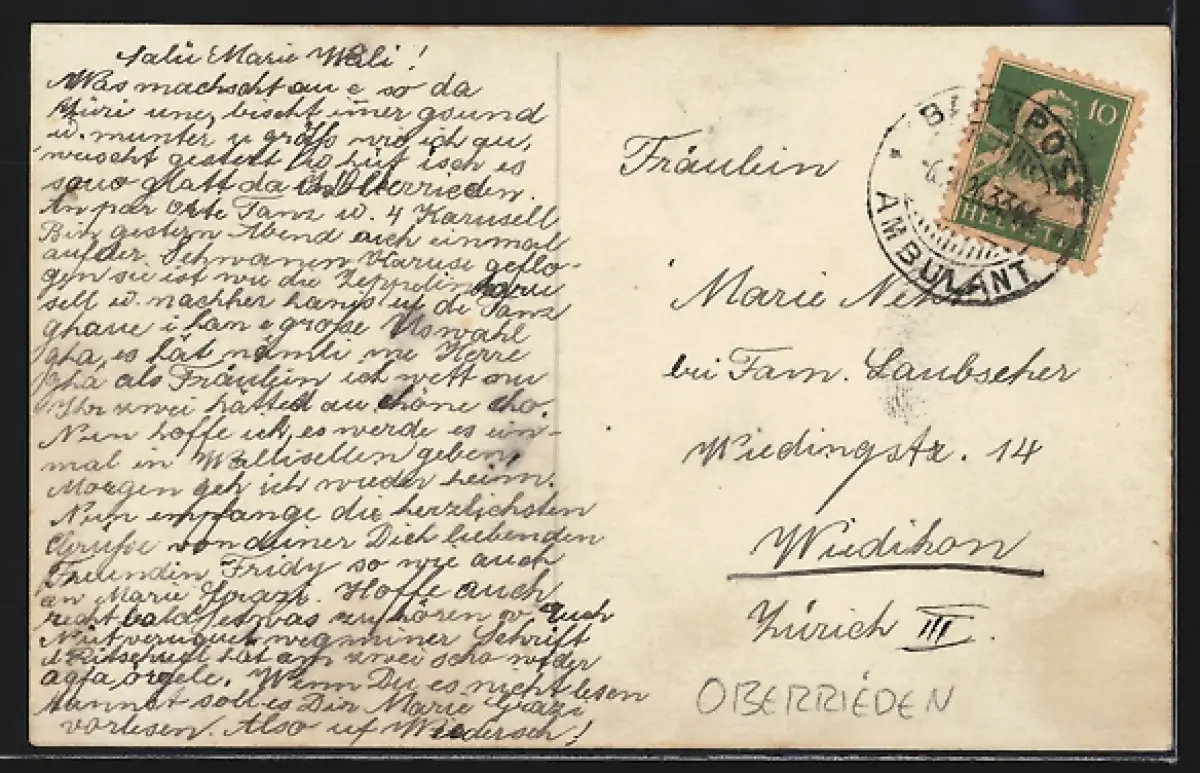 Salü Marie Wali!
Was machscht au e so da
Züri une, bischt imer gsund
u. munter u zwäg wie ich au,
weischt gestert
sauo glatt da in Oberrieden.
An par Orte Tanz u. 4 Karusell
Bin gestern Abend auch einmal
auf der Schwanen Karuse geflo-
gen sie ist wie die Zeppelin
sell u. nachher hangs uf di Tanz
ghaue i han e große Uswahl
gha, es hät nämli me Herre
gha als Fräulein ich wett au
Ihr zwei hätted au chöne cho.
Nun hoffe ich, es werde es ein-
mal in Wallisellen geben,
Morgen geh ich wieder heim.
Nun empfange die herzlichsten
Grüße von deiner Dich liebenden
Freundin Fridy so wie auch
an Marie Grazi. Hoffe auch
recht bald etwas zu hören vo Euch
Nüt verungut weg miner Schrift
hät am zwei scho wider
agfa örgele. Wenn Du es nicht lesen
kannst soll es Dir Marie Grazi
vorlesen. Also uf Wiederseh!
BAHNPOST
AMBULANT
10
HELVETIA
Fräulein
Marie
bei Fam. Laubscher
Wiedingstr. 14
Wiedikon
Zürich III.
OBERRIEDEN